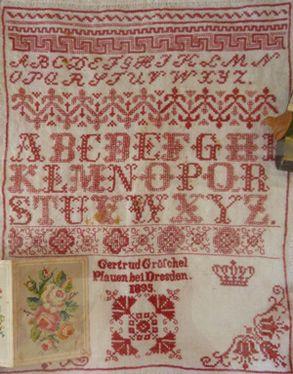 ABCDEFGHIJKLMN
OPQRSTUVWXYZ.
ABCDEFGHI
KLMNOPQR
STUVWXYZ.
Gertrud Gröschel
Plauen bei Dresden.
1895.